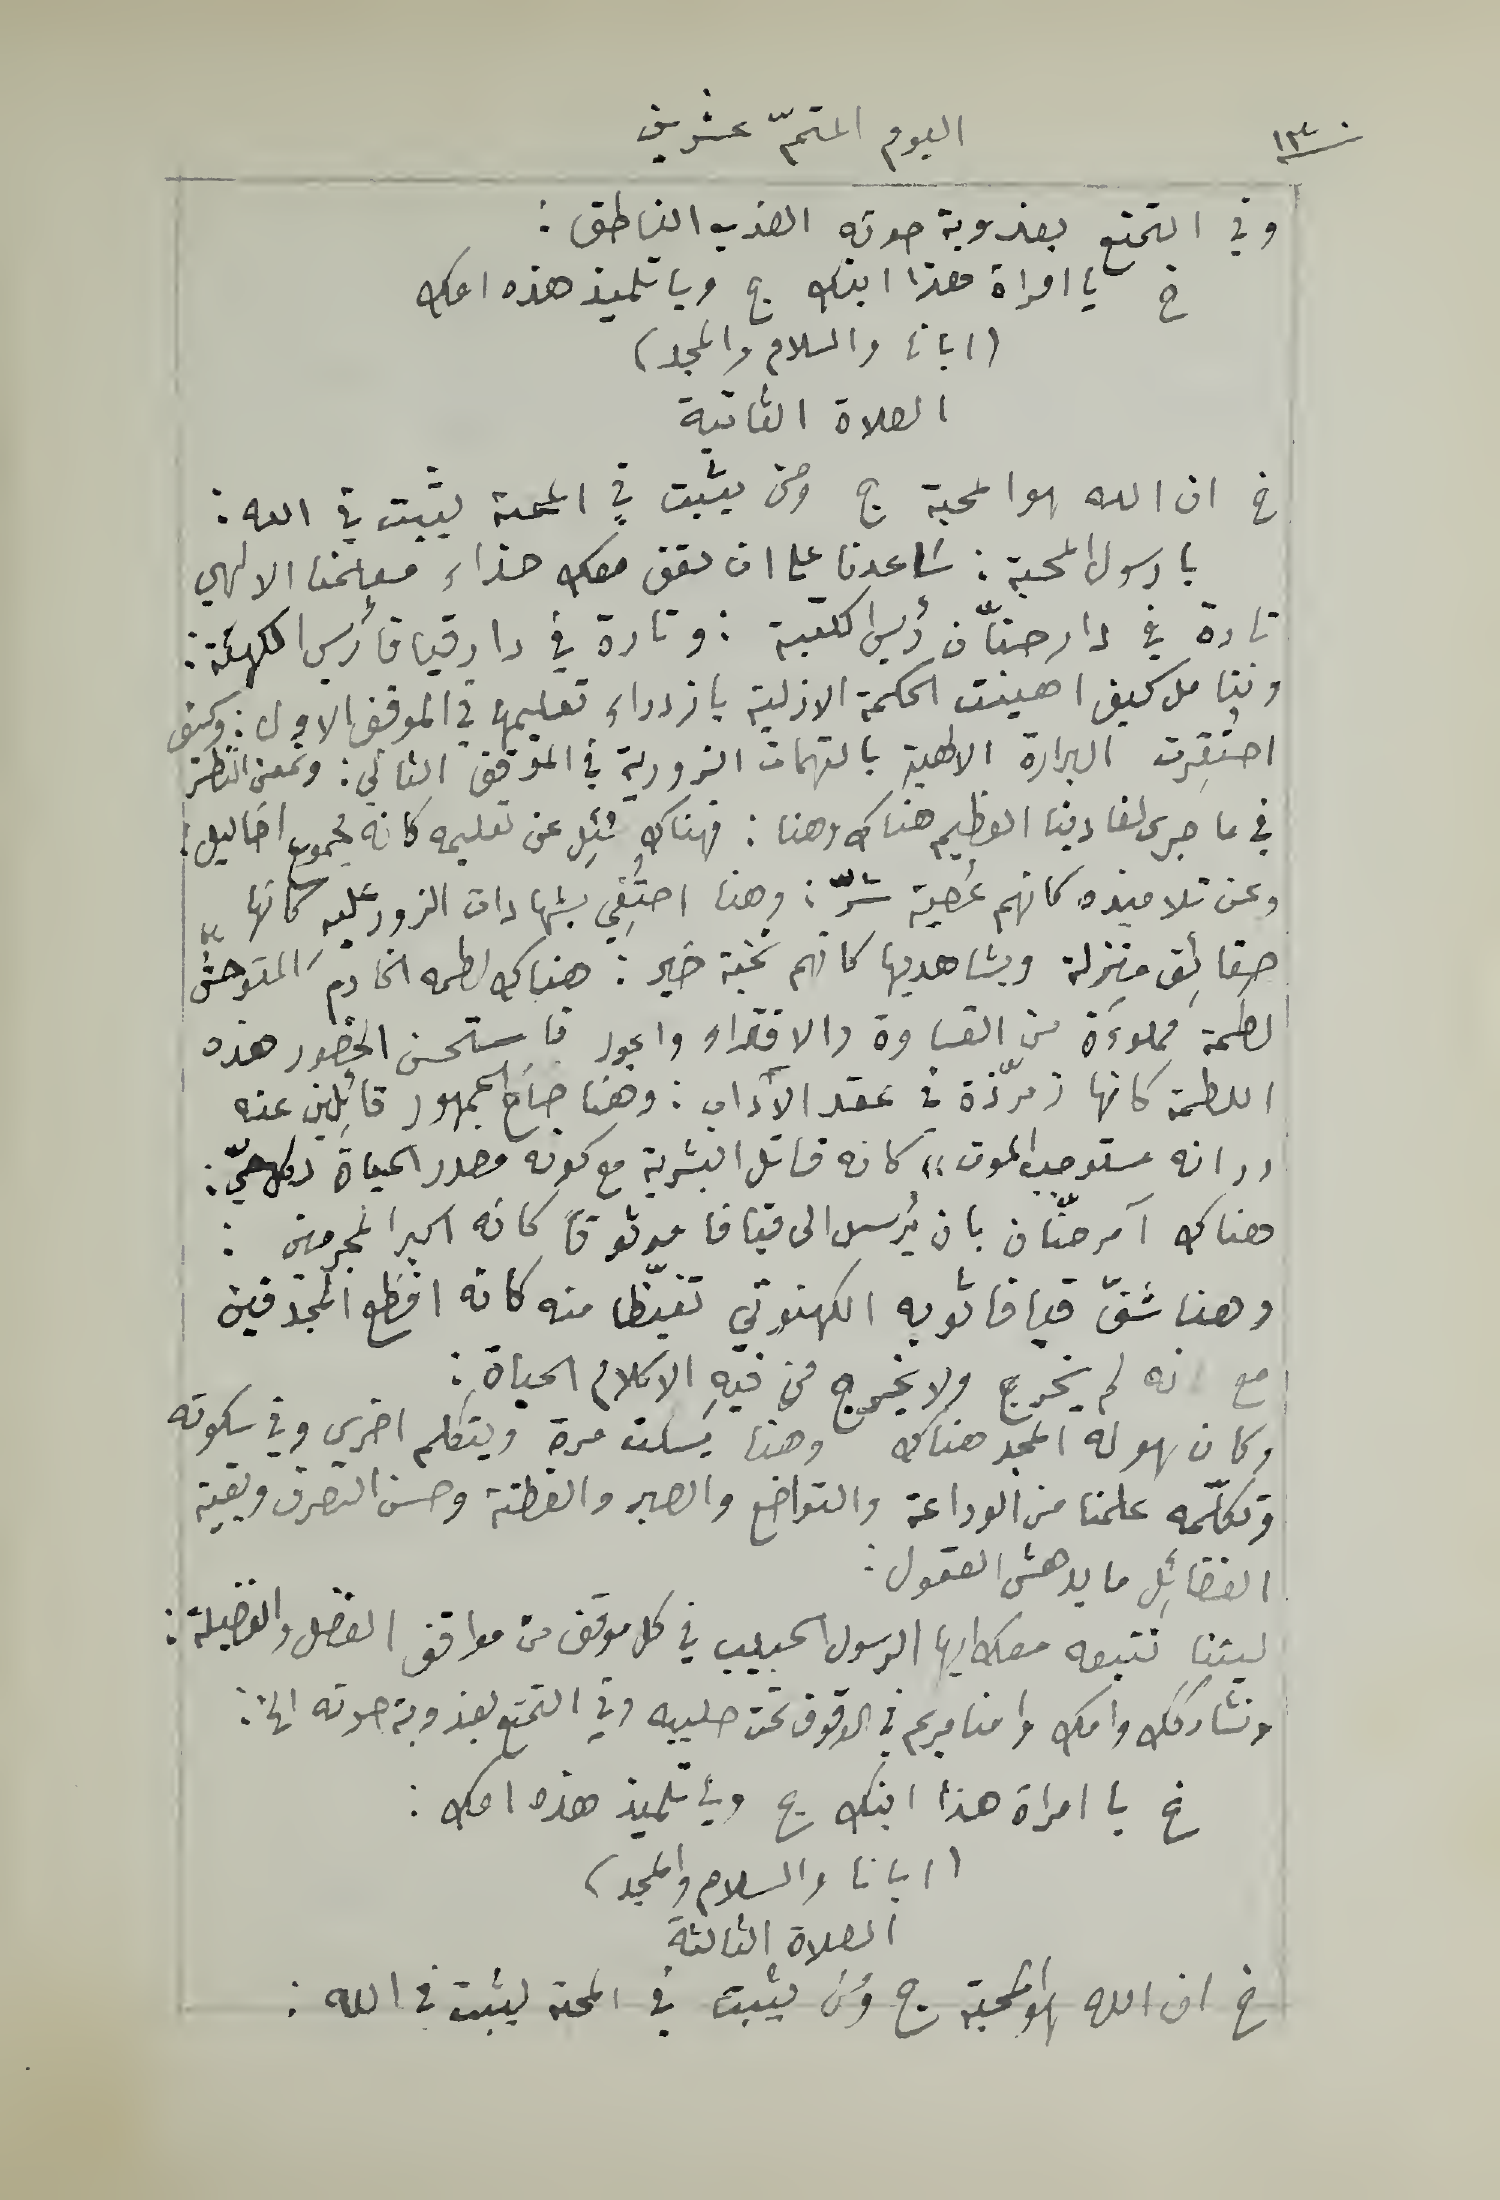 ١٣٠
اليوم المتمّ عشرين
وفي التمتع بعذوبة صوته العذب الناطق :
خ يا امراة هذا ابنك ج ويا تلميذ هذه امك
(ابانا والسلام والمجد)
الصلاة الثانية
خ ان الله هو المحبة ج ومن يثبت في المحبة يثبت في الله :
يا رسول المحبة : ساعدنا على ان نقف معك حذاء معلمنا الالهي
تارة في دار حنّان رئيس الكتبة : وتارة في دار قيافا رئيس الكهنة :
ونتامل كيف اهينت الحكمة الازلية بازدراء تعليمها في الموقف الاول : وكيف
احتُقِرت البرارة الالهية بالتهمات الزورية في الموقف الثاني : ونمعن النظر
في ما جرى لفادينا العظيم هناك وهنا : فهناك سُئِل عن تعليمه كانه مجموع اضاليل :
وعن تلاميذه كانهم عُصبة شرّ : وهنا احتُفِي بشهادات الزور عليه كانها
حقائق منزلة وبشاهديها كانهم نخبة خير : هناك لطمه الخادم المتوحّش
لطمة مملوءة من القساوة والافتراء والجور فاستحسن الحضور هذه
اللطمة كانها زمرّذة في عقد الآداب : وهنا صاح الجمهور قائلين عنه
"انه مستوجب الموت" كانه قاتل البشرية مع كونه مصدر الحياة لكل حيّ :
هناك آمر حنّان بان يُرسل الى قيافا موثوقًا كانه اكبر المجرمين :
وهنا شقّ قيافا ثوبه الكهنوتي تغيّظا منه كانه افظع المجدفين
مع انه لم يخرج ولا يخرج من فيهِ الا كلام الحياة :
وكان هو له المجد هناك وهنا يسكت مرة ويتكلم اخرى وفي سكوته
وتكلّمه علمنا من الوداعة والتواضع والصبر والفطنة وحسن التصرف وبقية
الفضائل ما يدهش العقول :
ليتنا نتبعه معك ايها الرسول الحبيب في كل موقف من مواقف الفضل والفضيلة :
ونشاركك وامك وامنا مريم في الوقوف تحت صليبه وفي التمتع بعذوبة صوته الخ :
خ يا امراة هذا ابنك ج ويا تلميذ هذه امك :
(ابانا والسلام والمجد)
الصلاة الثالثة
خ ان الله هو المحبة ج ومن يثبت في المحبة يثبت في الله :